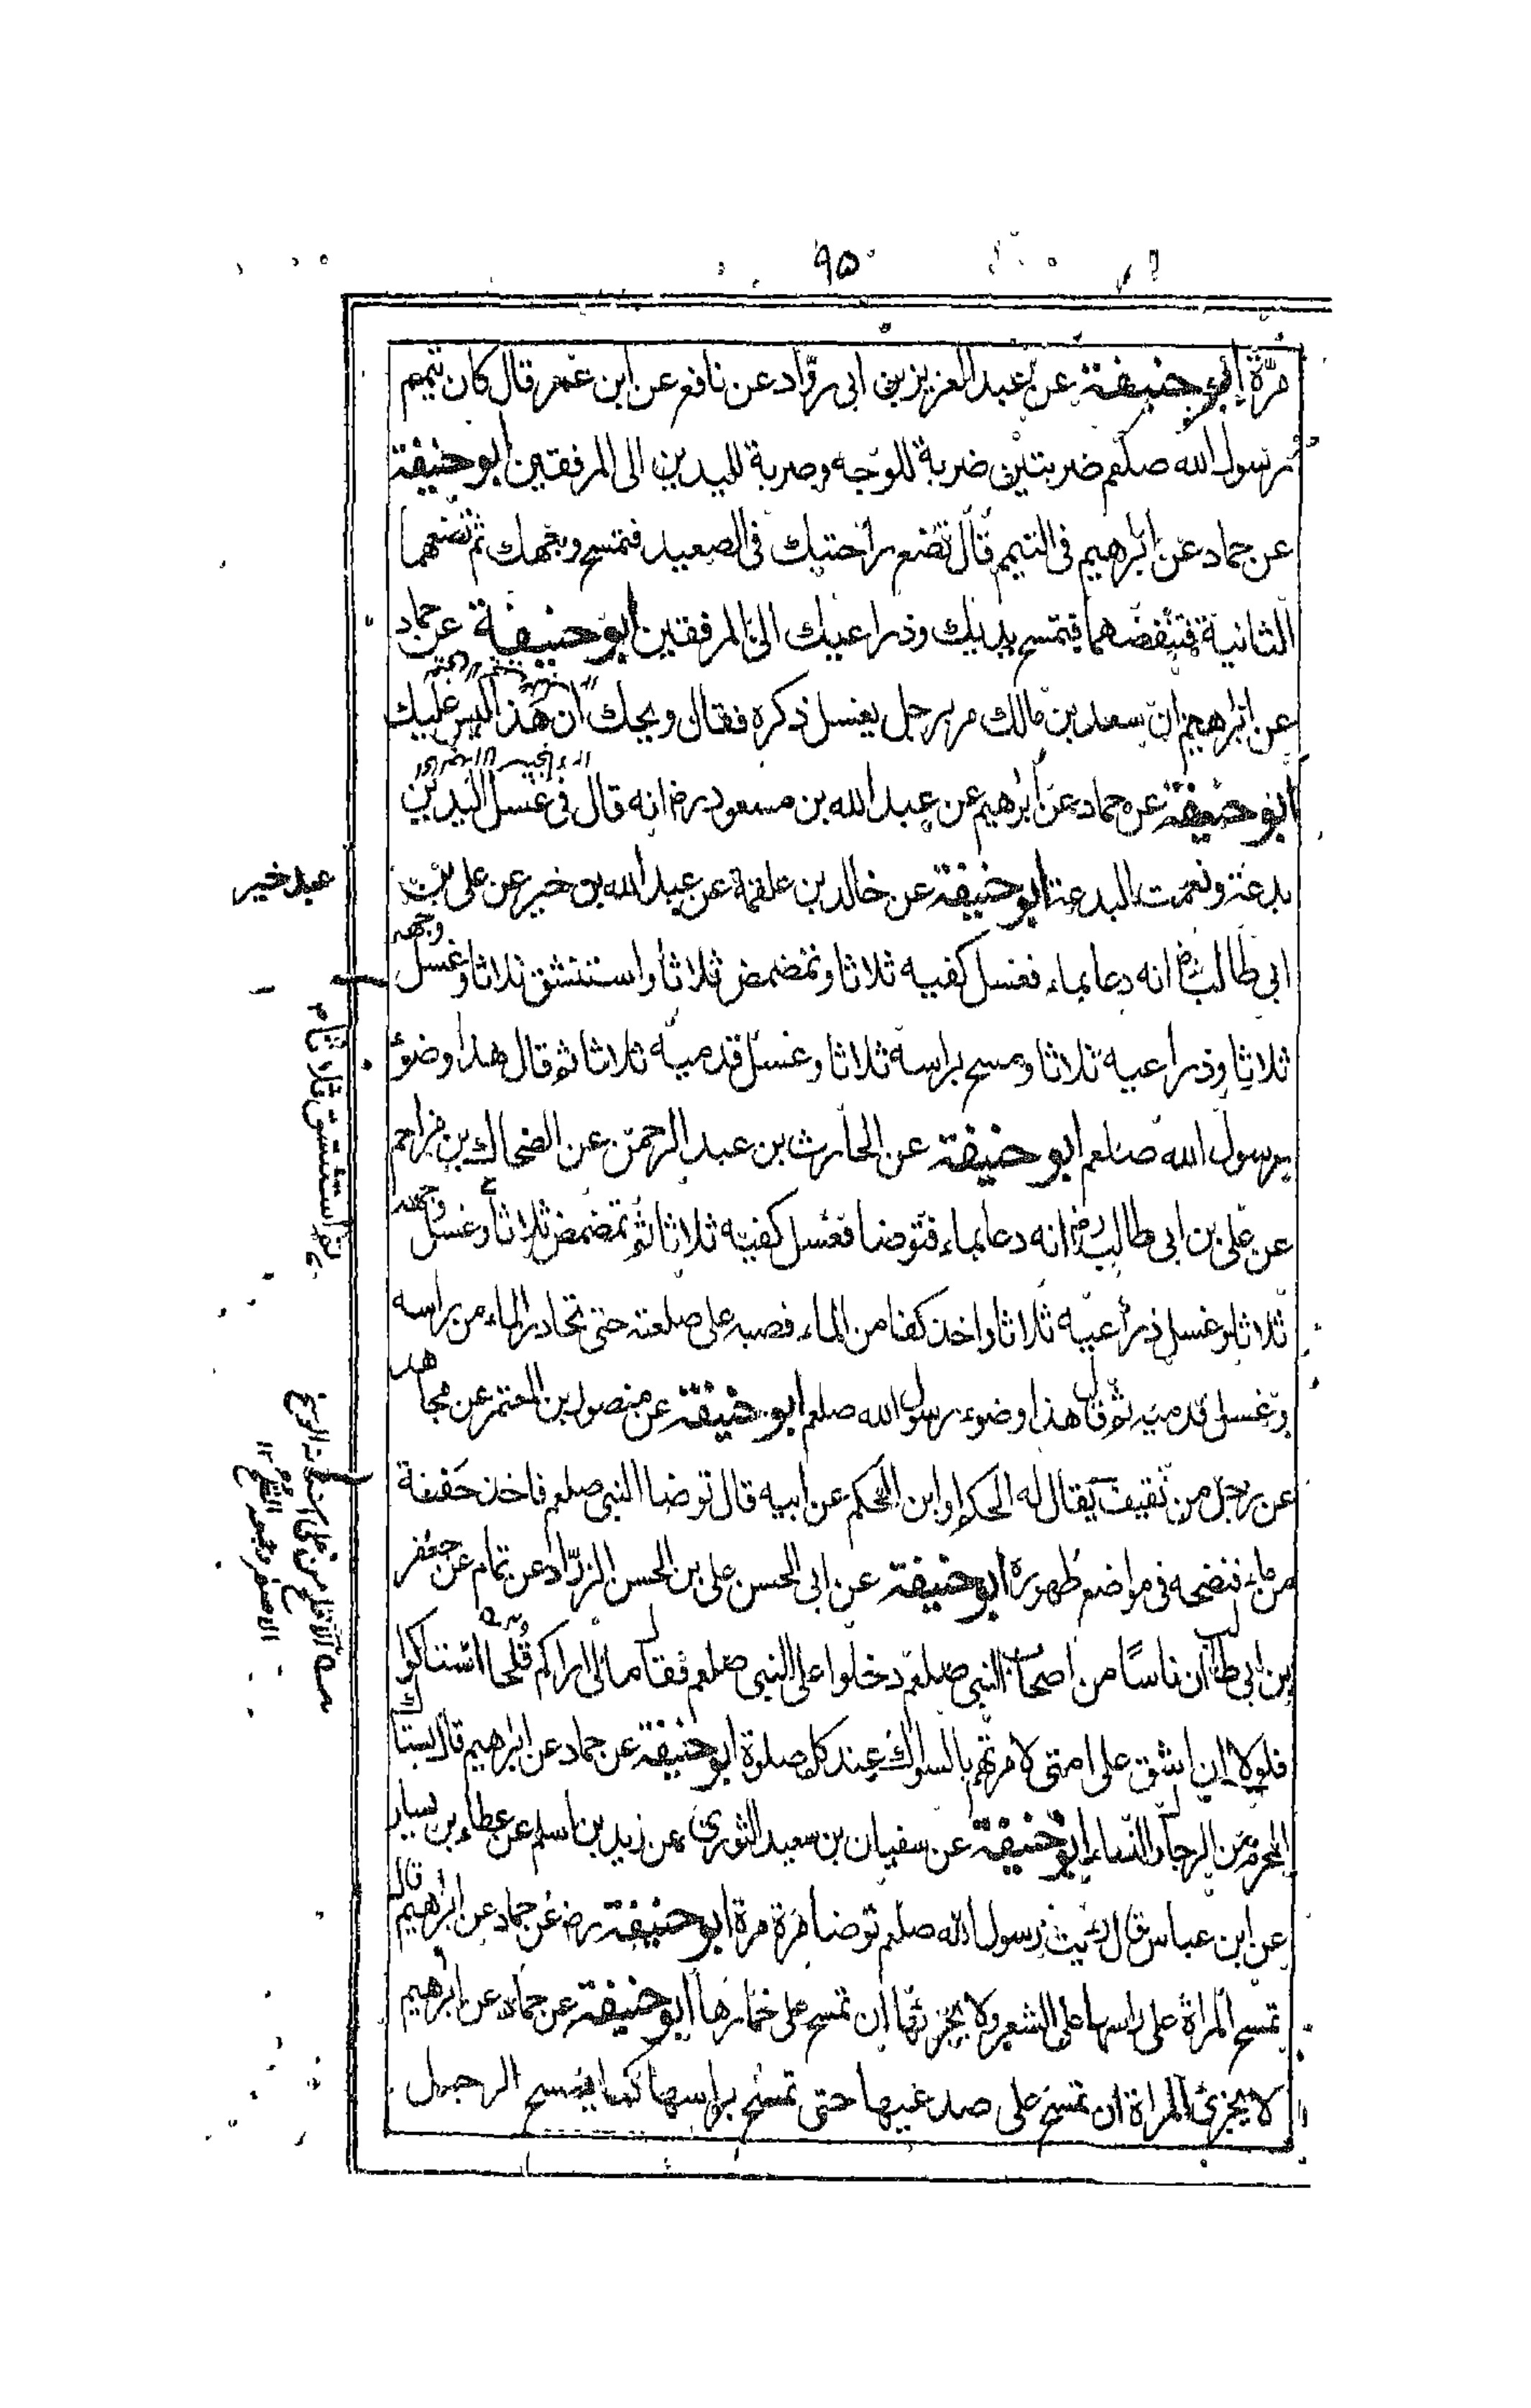 ٩٥
مرّة ابو حنيفة عن عبد العزيز بن ابى روّاد عن نافع عن ابن عمر قال كان تيمم
رسول الله صلعم ضربتين ضربة للوجه وضربة لليدين الى المرفقين ابو حنيفة
عن حماد عن ابرهيم فى التيمم قال تضع راحتيك فى الصعيد فتمسح وجهك ثم تضعهما
الثانية فتنفضهما فتمسح يديك وذراعيك الى المرفقين ابو حنيفة عن حماد
عن ابرهيم ان سعد بن مالك مر برجل يغسل ذكره فقال ويحك ان هذا ليس عليك
ابو حنيفة عن حماد عن ابرهيم عن عبد الله بن مسعود رض انه قال فى غسل اليدين
بدعة ونعمت البدعة ابو حنيفة عن خالد بن علقمة عن عبد الله بن خير عن على بن
عبد خير
ابى طالب رض انه دعا بماء فغسل كفيه ثلاثا وتمضمض ثلاثا واستنشق ثلاثا وغسل وجهه
ثلاثا وذراعيه ثلاثا ومسح براسه ثلاثا وغسل قدميه ثلاثا ثم قال هذا وضوء
رسول الله صلعم ابو حنيفة عن الحارث بن عبد الرحمن عن الضحاك بن مزاحم
عن على بن ابى طالب رض انه دعا بماء فتوضا فغسل كفيه ثلاثا ثم تمضمض ثلاثا وغسل وجهه
ثم استنشق ثلاثا
ثلاثا وغسل ذراعيه ثلاثا واخذ كفا من الماء فصبه على صلعته حتى تحادر الماء من براسه
وغسل قدميه ثم قال هذا وضوء رسول الله صلعم ابو حنيفة عن منصور بن المعتمر عن مجاهد
عن رجل من ثقيف يقال له الحكم او ابن الحكم عن ابيه قال توضا النبى صلعم فاخذ حفنة
من ماء فنضحه فى مواضع طهوره ابو حنيفة عن ابى الحسن على بن الحسن الزرّاد عن تمام عن جعفر
بن ابى طالب ان ناسًا من اصحاب النبى صلعم دخلوا على النبى صلعم فقال ما لى اراكم قُلحا استاكوا
فلولا ان اشق على امتى لامرتهم بالسواك عند كل صلوة ابو حنيفة عن حماد عن ابرهيم قال يستاك
المحرم من الرجال والنساء ابو حنيفة عن سفيان بن سعيد الثورى عن زيد بن اسلم عن عطاء بن يسار
عن ابن عباس قال رئيت رسول الله صلعم توضا مرة مرة ابو حنيفة رض عن حماد عن ابرهيم قال
تمسح المراة على راسها على الشعر ولا يجزئها ان تمسح على خمارها ابو حنيفة عن حماد عن ابرهيم
لا يجزئ المراة ان تمسح على صدغيها حتى تمسح براسها كما يمسح الرجل